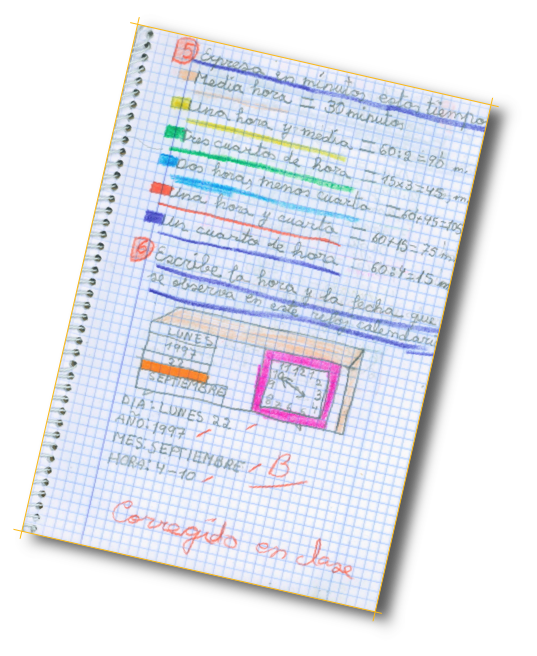 5 Expresa en minutos estos tiempos
Media hora = 30 minutos
Una hora y media = 60:2=90 m.
Tres cuartos de hora = 15x3=45 m
Dos horas menos cuarto = 60+45=105
Una hora y cuarto = 60+15=75 m.
Un cuarto de hora = 60:4=15 m
6 Escribe la hora y la fecha que
se observa en este reloj calendario
LUNES
1997
22
SEPTIEMBRE
11 12 1
10 2
9 3
8 7 6
DIA: LUNES 22
AÑO: 1997
MES: SEPTIEMBRE
HORA: 4-10
B
Corregido en clase